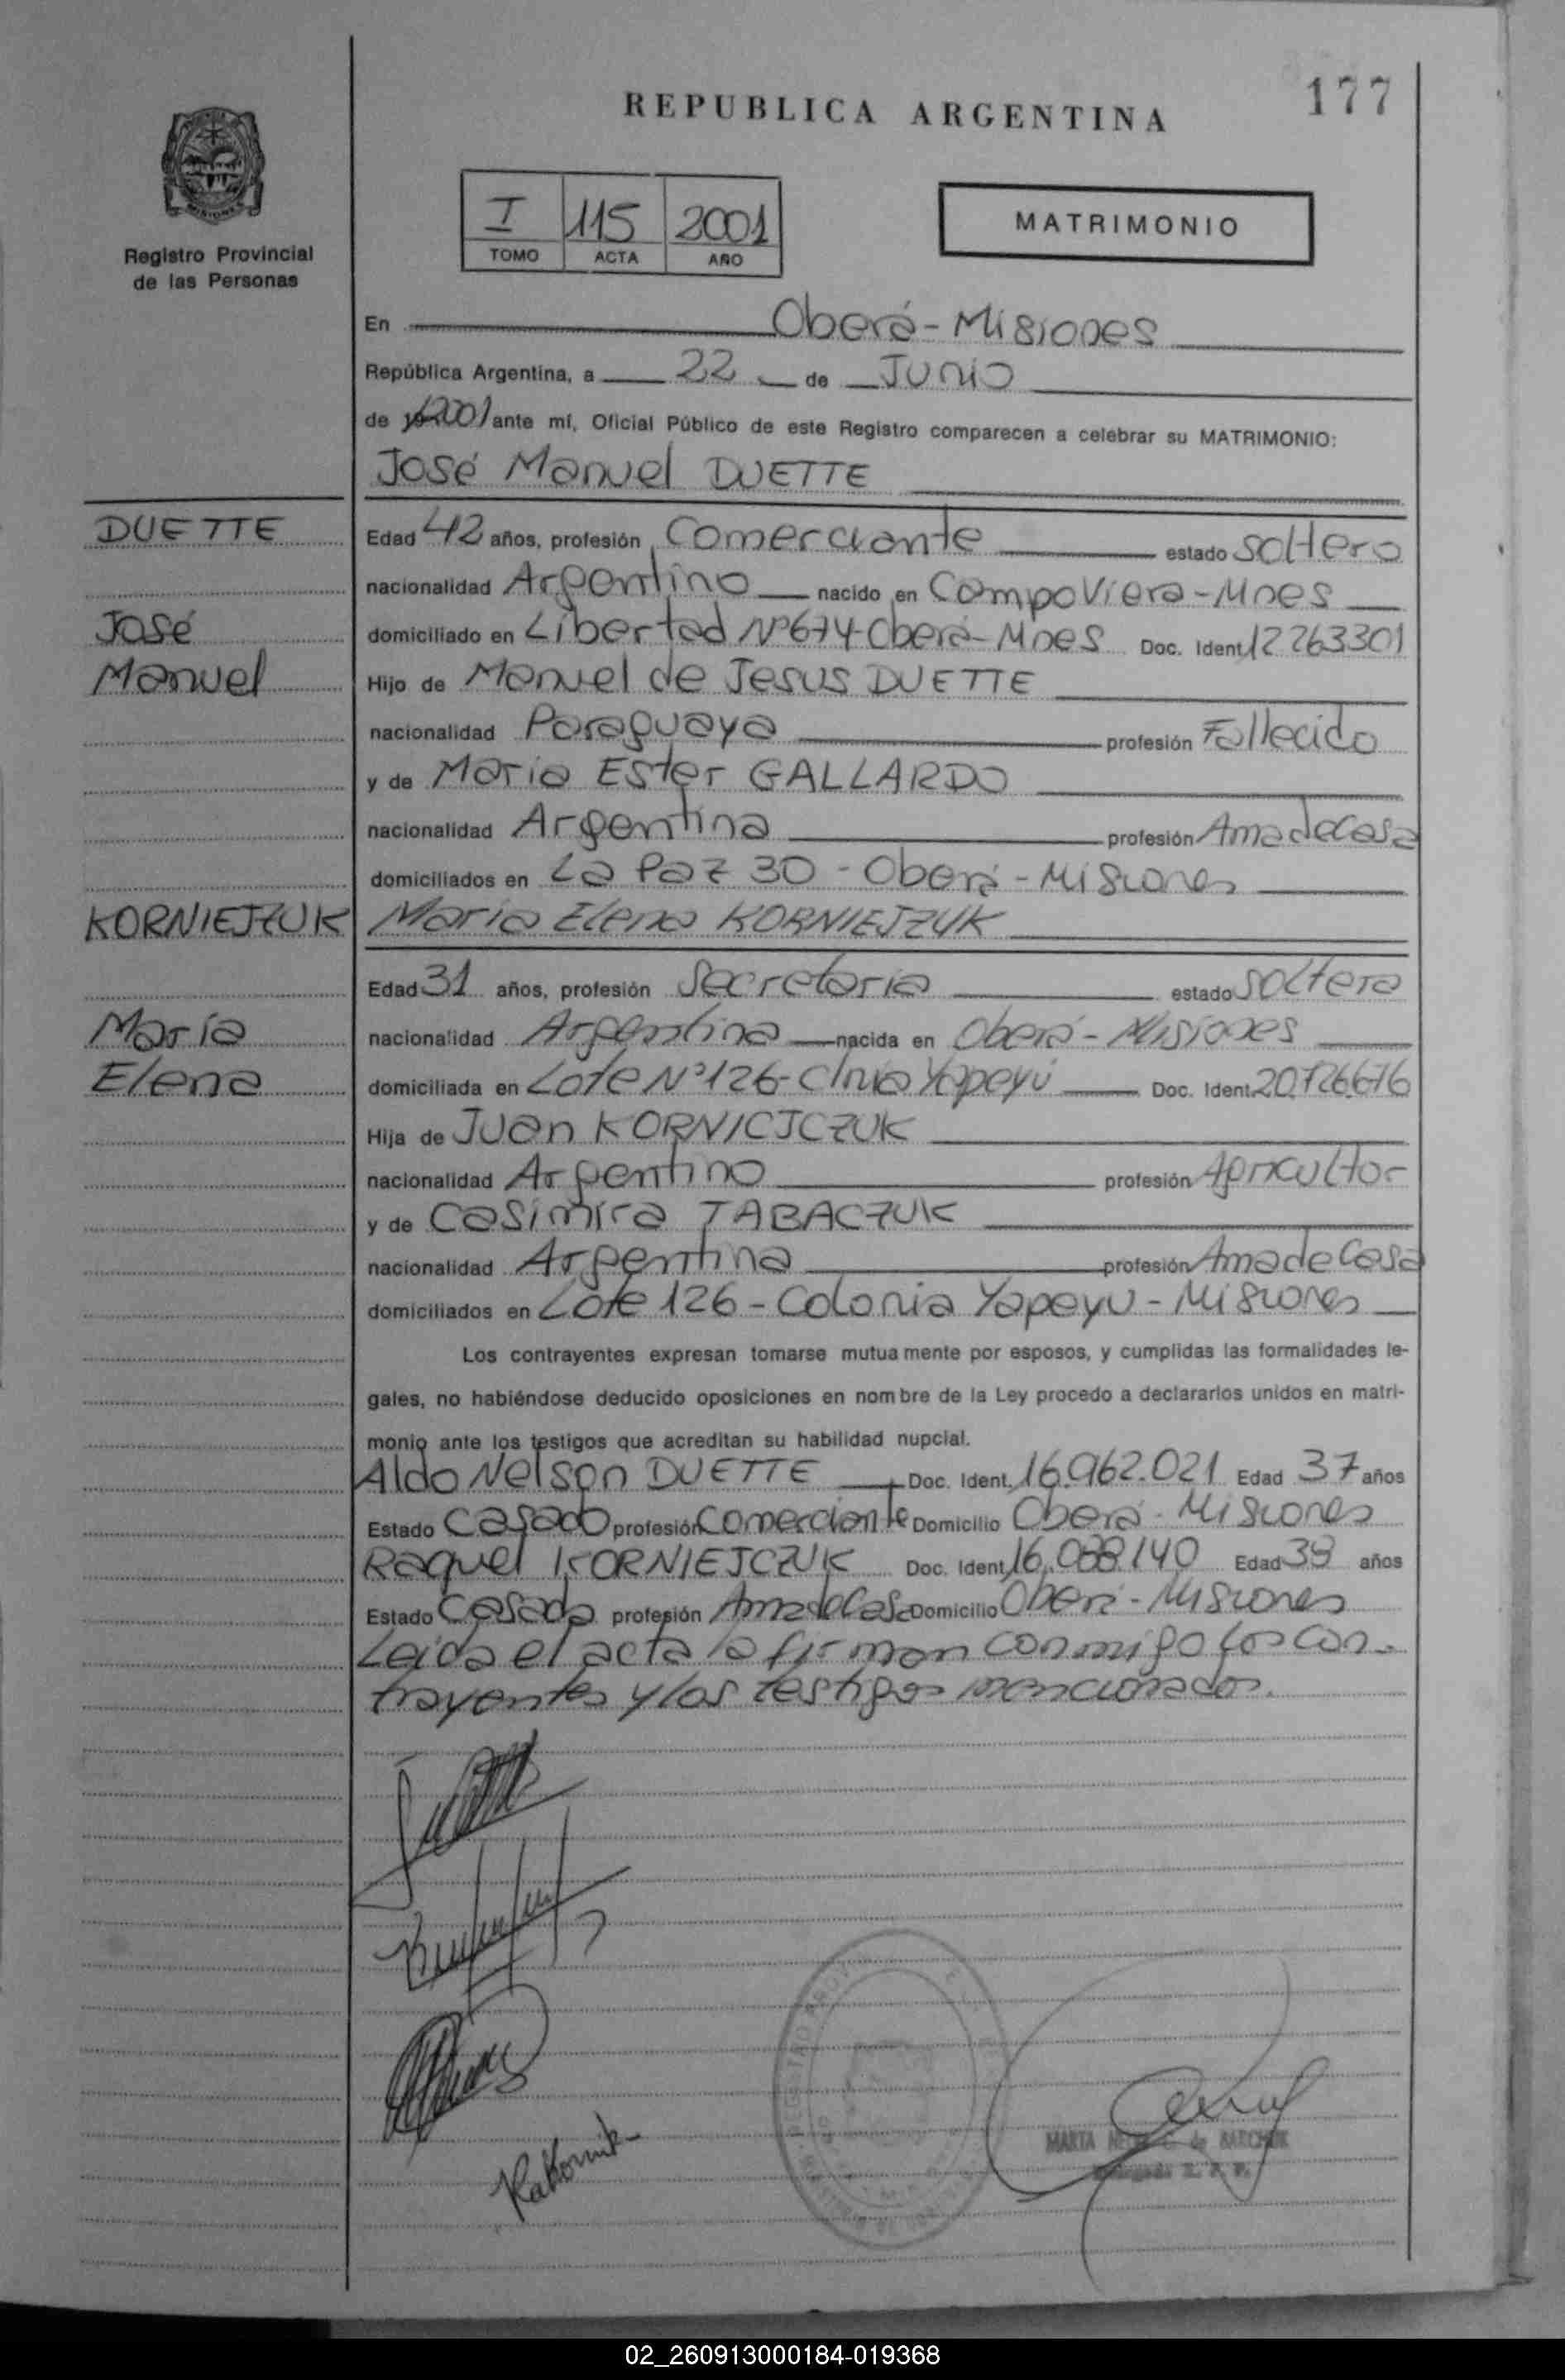 177
REPUBLICA ARGENTINA
MISIONES
Registro Provincial
de las Personas
I 115 2001
TOMO ACTA AÑO
MATRIMONIO
En Oberá - Misiones
República Argentina, a 22 de Junio
de 2001 ante mí, Oficial Público de este Registro comparecen a celebrar su MATRIMONIO:
José Manuel DUETTE
DUETTE
Edad 42 años, profesión Comerciante estado soltero
nacionalidad Argentino nacido en Campo Viera - Mnes
José
domiciliado en Libertad Nº 674 Oberá - Mnes Doc. Ident. 12263301
Manuel
Hijo de Manuel de Jesus DUETTE
nacionalidad Paraguaya profesión Fallecido
y de Maria Ester GALLARDO
nacionalidad Argentina profesión Ama de Casa
domiciliados en La Paz 30 - Oberá - Misiones
KORNIEJZUK
María Elena KORNIEJZUK
Edad 31 años, profesión Secretaria estado soltera
María
nacionalidad Argentina nacida en Oberá - Misiones
Elena
domiciliada en Lote Nº 126 - Clnia Yapeyú Doc. Ident. 20.726.676
Hija de Juan KORNICJCZUK
nacionalidad Argentino profesión Agricultor
y de Casimira TABACZUK
nacionalidad Argentina profesión Ama de Casa
domiciliados en Lote 126 - Colonia Yapeyu - Misiones
Los contrayentes expresan tomarse mutuamente por esposos, y cumplidas las formalidades le-
gales, no habiéndose deducido oposiciones en nombre de la Ley procedo a declararlos unidos en matri-
monio ante los testigos que acreditan su habilidad nupcial.
Aldo Nelson DUETTE Doc. Ident. 16.962.021 Edad 37 años
Estado Casado profesión Comerciante Domicilio Oberá - Misiones
Raquel KORNIEJCZUK Doc. Ident. 16.088.140 Edad 39 años
Estado Casada profesión Ama de Casa Domicilio Oberá - Misiones
Leida el acta la firman conmigo los con-
trayentes y los testigos mencionados.
MARTA
02_260913000184-019368